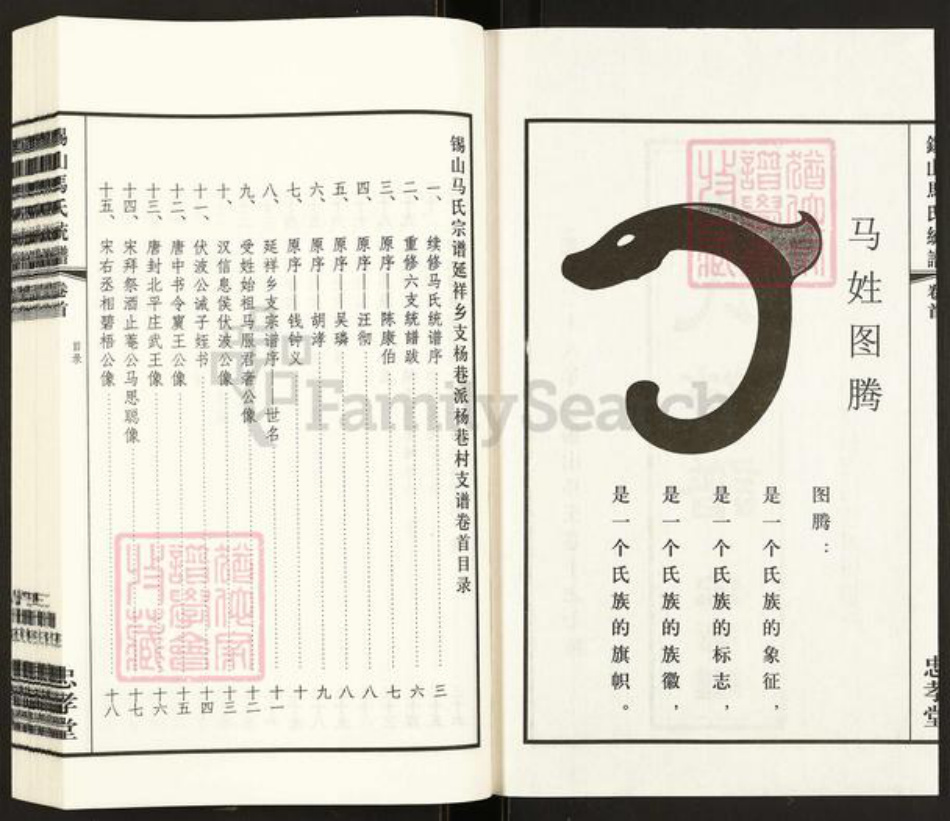 马姓图腾
图腾：
是一个氏族的象征，
是一个氏族的标志，
是一个氏族的族徽，
是一个氏族的旗帜。
忠孝堂
锡山马氏宗谱延祥乡支杨巷派杨巷村支谱卷首目录
一、续修马氏统谱序 三
二、重修六支統譜跋 六
三、原序——陈康伯 七
四、原序——汪彻 八
五、原序——吴璘 八
六、原序——胡濙 九
七、原序——钱钟义 十
八、延祥乡支宗谱序——世名 十一
九、受姓始祖马服君奢公像 十二
十、汉信息侯伏波公像 十三
十一、伏波公诫子姪书 十四
十二、唐中书令賔王公像 十五
十三、唐封北平庄武王像 十六
十四、宋拜祭酒止菴公马思聪像 十七
十五、宋右丞相碧梧公像 十八
錫山馬氏統譜
卷首
目录
忠孝堂
FamilySearch